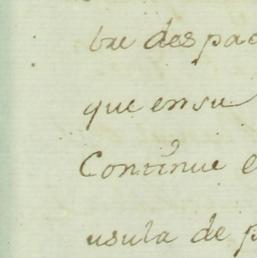 bre despac
que en su
Continue e
usula de p